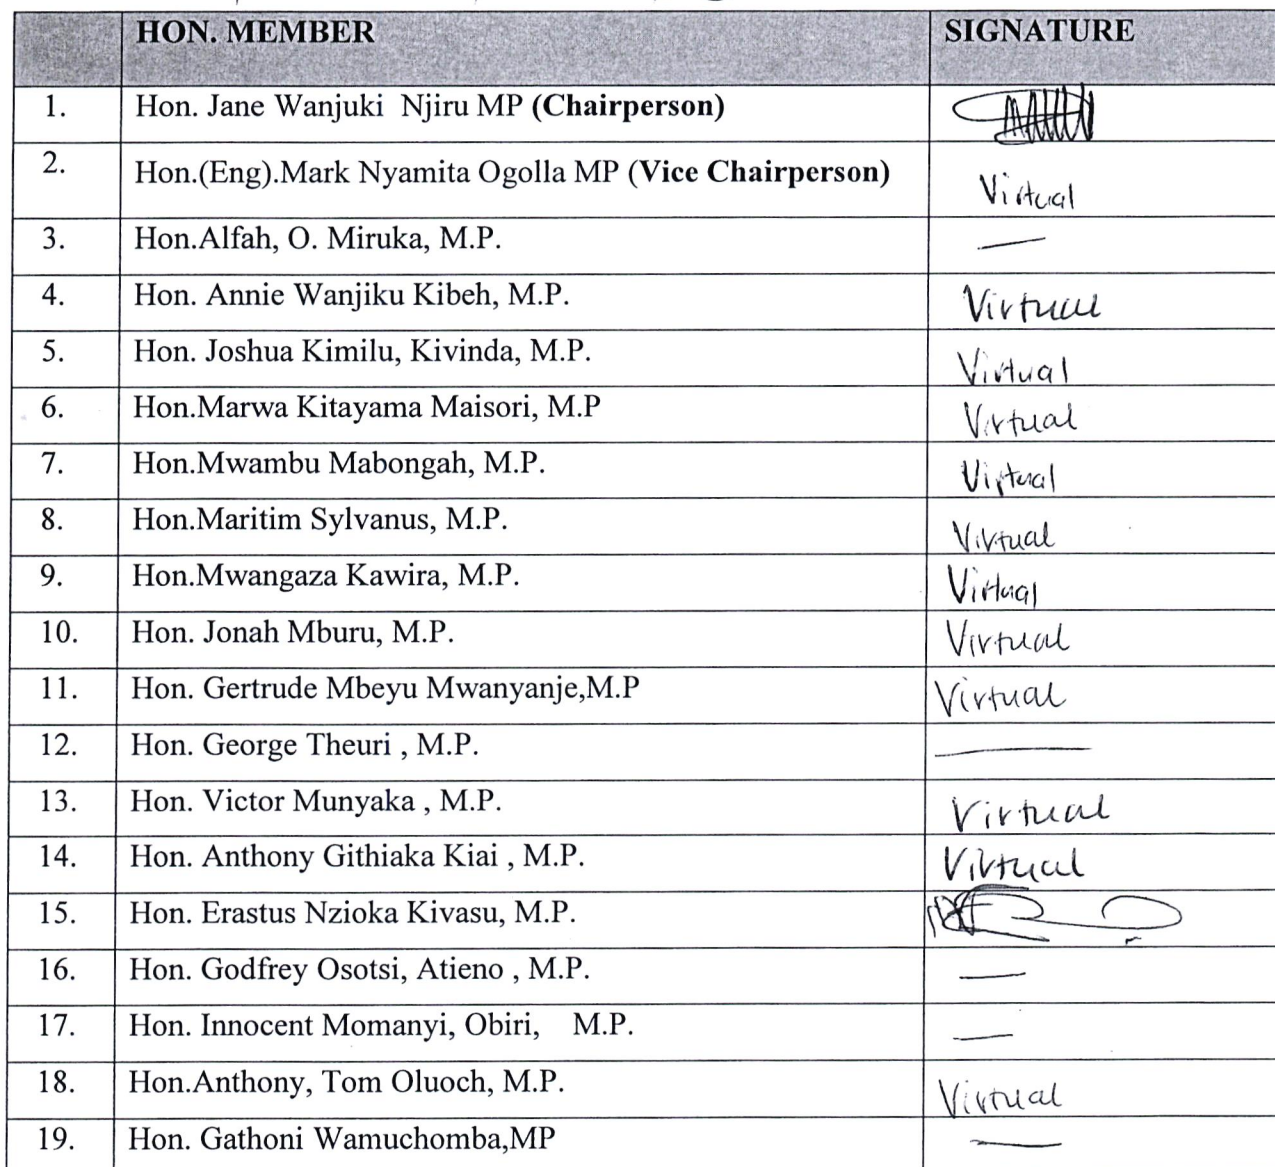 HON. MEMBER SIGNATURE
1. Hon. Jane Wanjuki Njiru MP (Chairperson)
2. Hon.(Eng).Mark Nyamita Ogolla MP (Vice Chairperson) Virtual
3. Hon.Alfah, O. Miruka, M.P. —
4. Hon. Annie Wanjiku Kibeh, M.P. Virtual
5. Hon. Joshua Kimilu, Kivinda, M.P. Virtual
6. Hon.Marwa Kitayama Maisori, M.P Virtual
7. Hon.Mwambu Mabongah, M.P. Virtual
8. Hon.Maritim Sylvanus, M.P. Virtual
9. Hon.Mwangaza Kawira, M.P. Virtual
10. Hon. Jonah Mburu, M.P. Virtual
11. Hon. Gertrude Mbeyu Mwanyanje,M.P Virtual
12. Hon. George Theuri , M.P. —
13. Hon. Victor Munyaka , M.P. Virtual
14. Hon. Anthony Githiaka Kiai , M.P. Virtual
15. Hon. Erastus Nzioka Kivasu, M.P.
16. Hon. Godfrey Osotsi, Atieno , M.P. —
17. Hon. Innocent Momanyi, Obiri, M.P. —
18. Hon.Anthony, Tom Oluoch, M.P. Virtual
19. Hon. Gathoni Wamuchomba,MP —